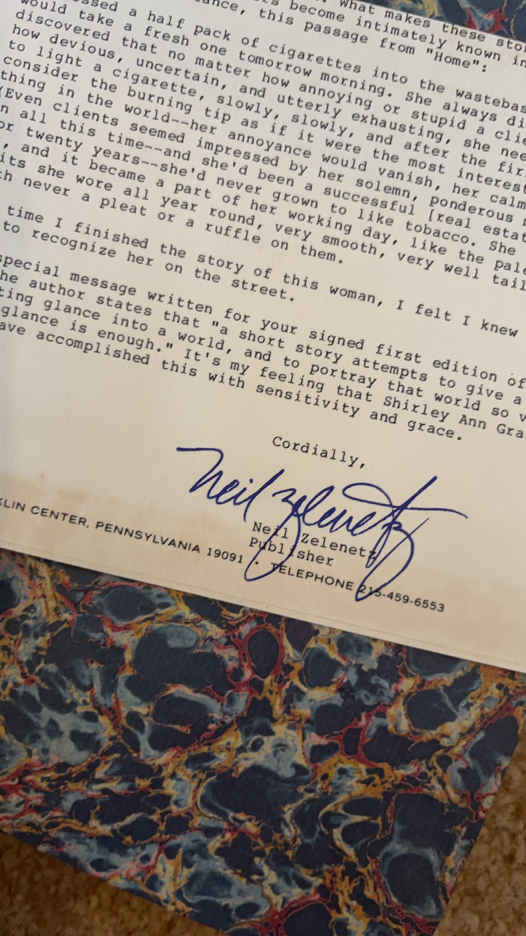 become intimately known in
What makes these
ance, this passage from "Home":
ssed a half pack of cigarettes into the
would take a fresh one tomorrow morning. She always
discovered that no matter how annoying or stupid a
how devious, uncertain, and utterly exhausting, she
to light a cigarette, slowly, slowly, and after the
consider the burning tip as if it were the most
thing in the world--her annoyance would vanish, her
(Even clients seemed impressed by her solemn, ponderous
n all this time--and she'd been a successful [real
or twenty years--she'd never grown to like tobacco. She
, and it became a part of her working day, like the
its she wore all year round, very smooth, very well
th never a pleat or a ruffle on them.
time I finished the story of this woman, I felt I knew
to recognize her on the street.
special message written for your signed first edition of
he author states that "a short story attempts to give a
ting glance into a world, and to portray that world so
glance is enough." It's my feeling that Shirley Ann
ave accomplished this with sensitivity and grace.
Cordially,
Neil Zelenetz
Neil Zelenetz
Publisher
KLIN CENTER, PENNSYLVANIA 19091 • TELEPHONE 215-459-6553